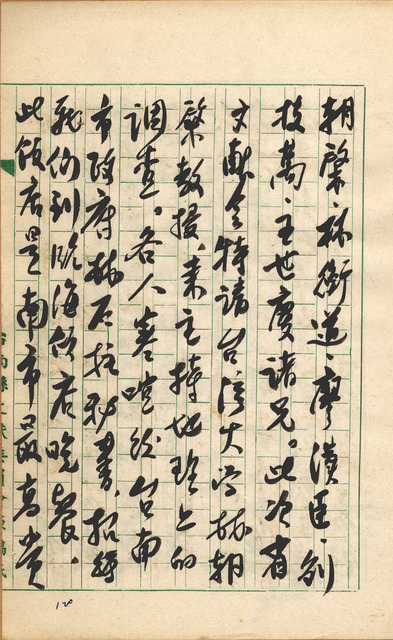 朝棨、林衡道、廖漢臣、劉
枝萬、王世慶諸兄。此次省
文獻会特請台湾大学林朝
棨教授、来主持地球上的
調查。各人寒喧後台南
市政府林石抗秘書、招待
我们到臨海飯店晚餐、
此飯店是南市最高貴
120